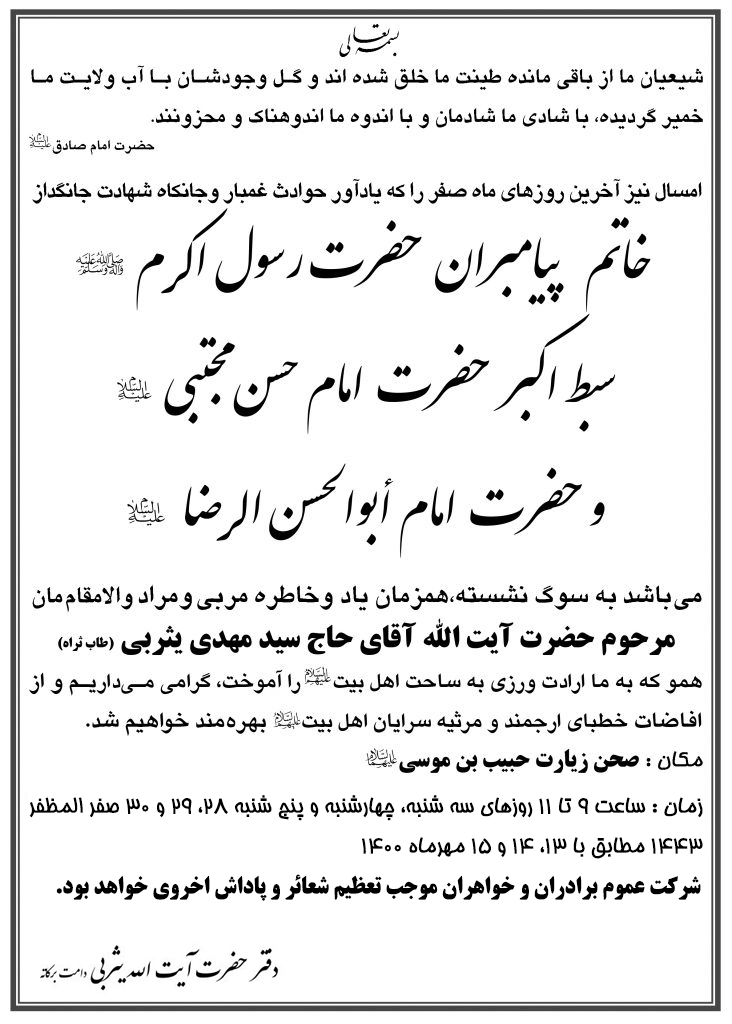 بسمه تعالی
شیعیان ما از باقی مانده طینت ما خلق شده اند و گـل وجودشـان بـا آب ولایـت مـا
خمیر گردیده، با شادی ما شادمان و با اندوه ما اندوهناک و محزونند.
حضرت امام صادق علیه السلام
امسال نیز آخرین روزهای ماه صفر را که یادآور حوادث غمبار وجانکاه شهادت جانگداز
خاتم پیامبران حضرت رسول اکرم صلی الله علیه وآله وسلم
سبط اکبر حضرت امام حسن مجتبی علیه السلام
و حضرت امام أبوالحسن الرضا علیه السلام
می‌باشد به سوگ نشسته،همزمان یاد وخاطره مربی ومراد والامقام‌مان
مرحوم حضرت آیت الله آقای حاج سید مهدی یثربی (طاب ثراه)
همو که به ما ارادت ورزی به ساحت اهل بیت علیهم السلام را آموخت، گرامی مـی‌داریـم و از
افاضات خطبای ارجمند و مرثیه سرایان اهل بیت علیهم السلام بهره‌مند خواهیم شد.
مکان : صحن زیارت حبیب بن موسی علیهما السلام
زمان : ساعت ۹ تا ۱۱ روزهای سه شنبه، چهارشنبه و پنج شنبه ۲۸، ۲۹ و ۳۰ صفر المظفر
۱۴۴۳ مطابق با ۱۳، ۱۴ و ۱۵ مهرماه ۱۴۰۰
شرکت عموم برادران و خواهران موجب تعظیم شعائر و پاداش اخروی خواهد بود.
دفتر حضرت آیت الله یثربی دامت برکاته